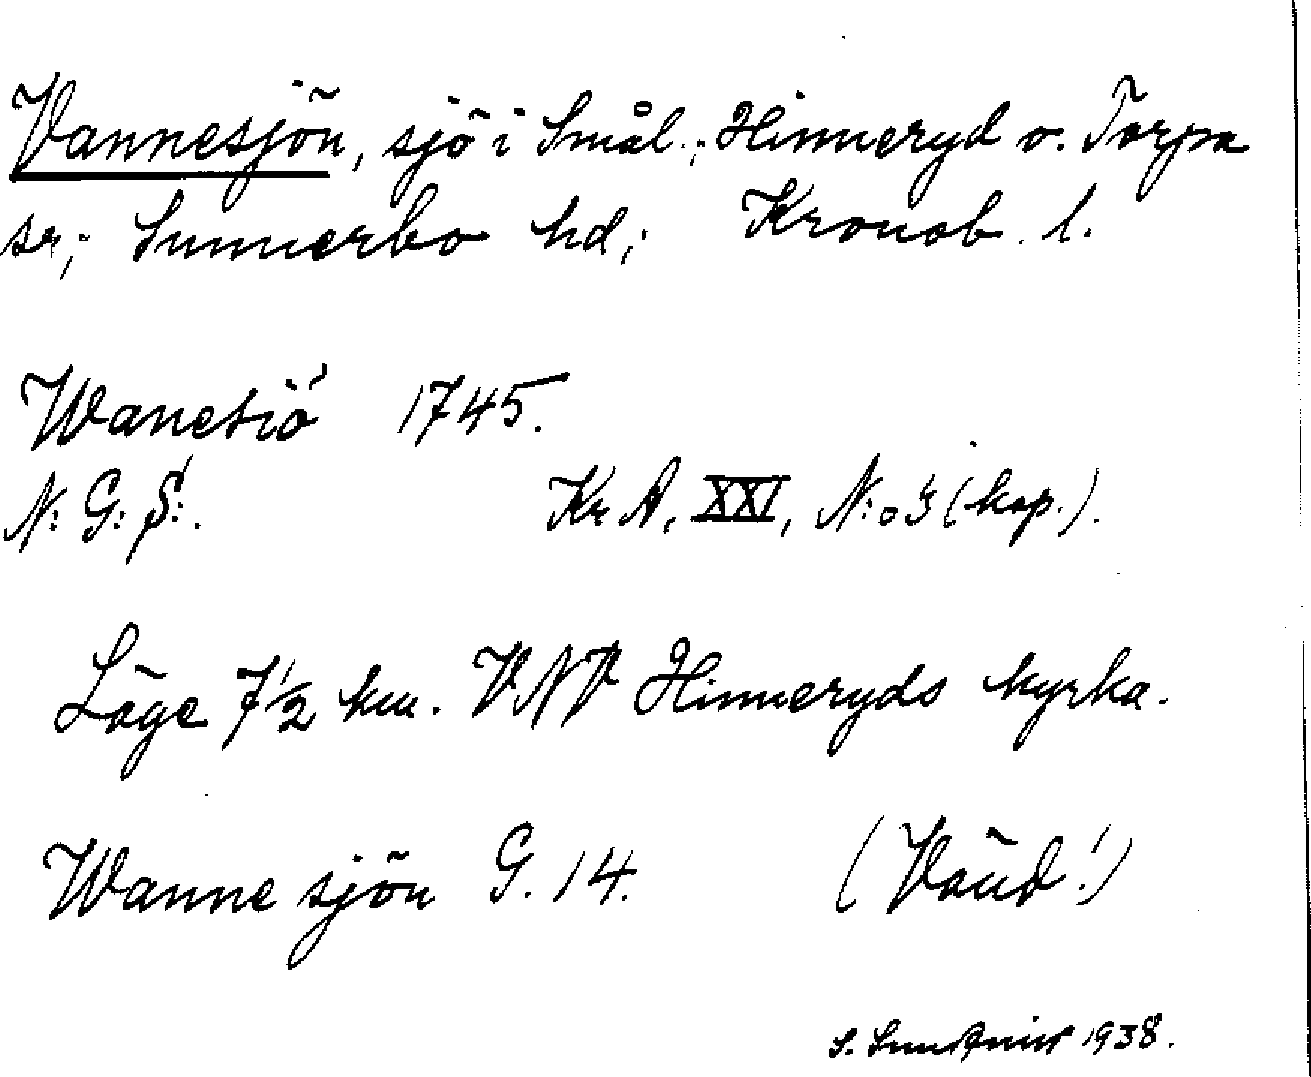 Vannesjön, sjö i Smål.; Hinneryd o. Torpa
sr; Sunnerbo hd; Kronob. l.
Wanesiö 1745.
N: G: S:.
Kr A, XXI, N:o 3 (kop.).
Läge 7½ km. VNV Hinneryds kyrka.
Wanne sjön G. 14.
(Vänd!)
S. Sundqvist 1938.